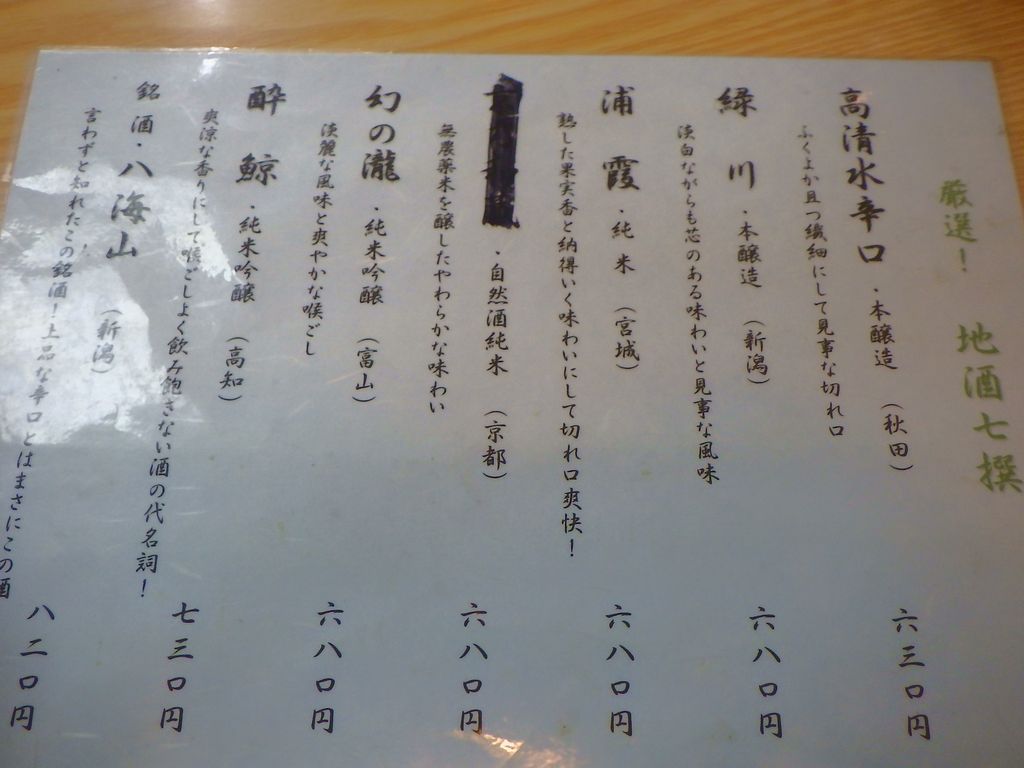 厳選! 地酒七撰
高清水辛口・本醸造 (秋田) 六三〇円
ふくよか且つ繊細にして見事な切れ口
緑川・本醸造 (新潟) 六八〇円
淡白ながらも芯のある味わいと見事な風味
浦霞・純米 (宮城) 六八〇円
熟した果実香と納得いく味わいにして切れ口爽快!
・自然酒純米 (京都) 六八〇円
無農薬米を醸したやわらかな味わい
幻の瀧・純米吟醸 (富山) 六八〇円
淡麗な風味と爽やかな喉ごし
酔鯨・純米吟醸 (高知) 七三〇円
爽涼な香りにして喉ごしよく飲み飽きない酒の代名詞!
銘酒・八海山 (新潟) 八二〇円
言わずと知れたこの銘酒!上品な辛口とはまさにこの酒!